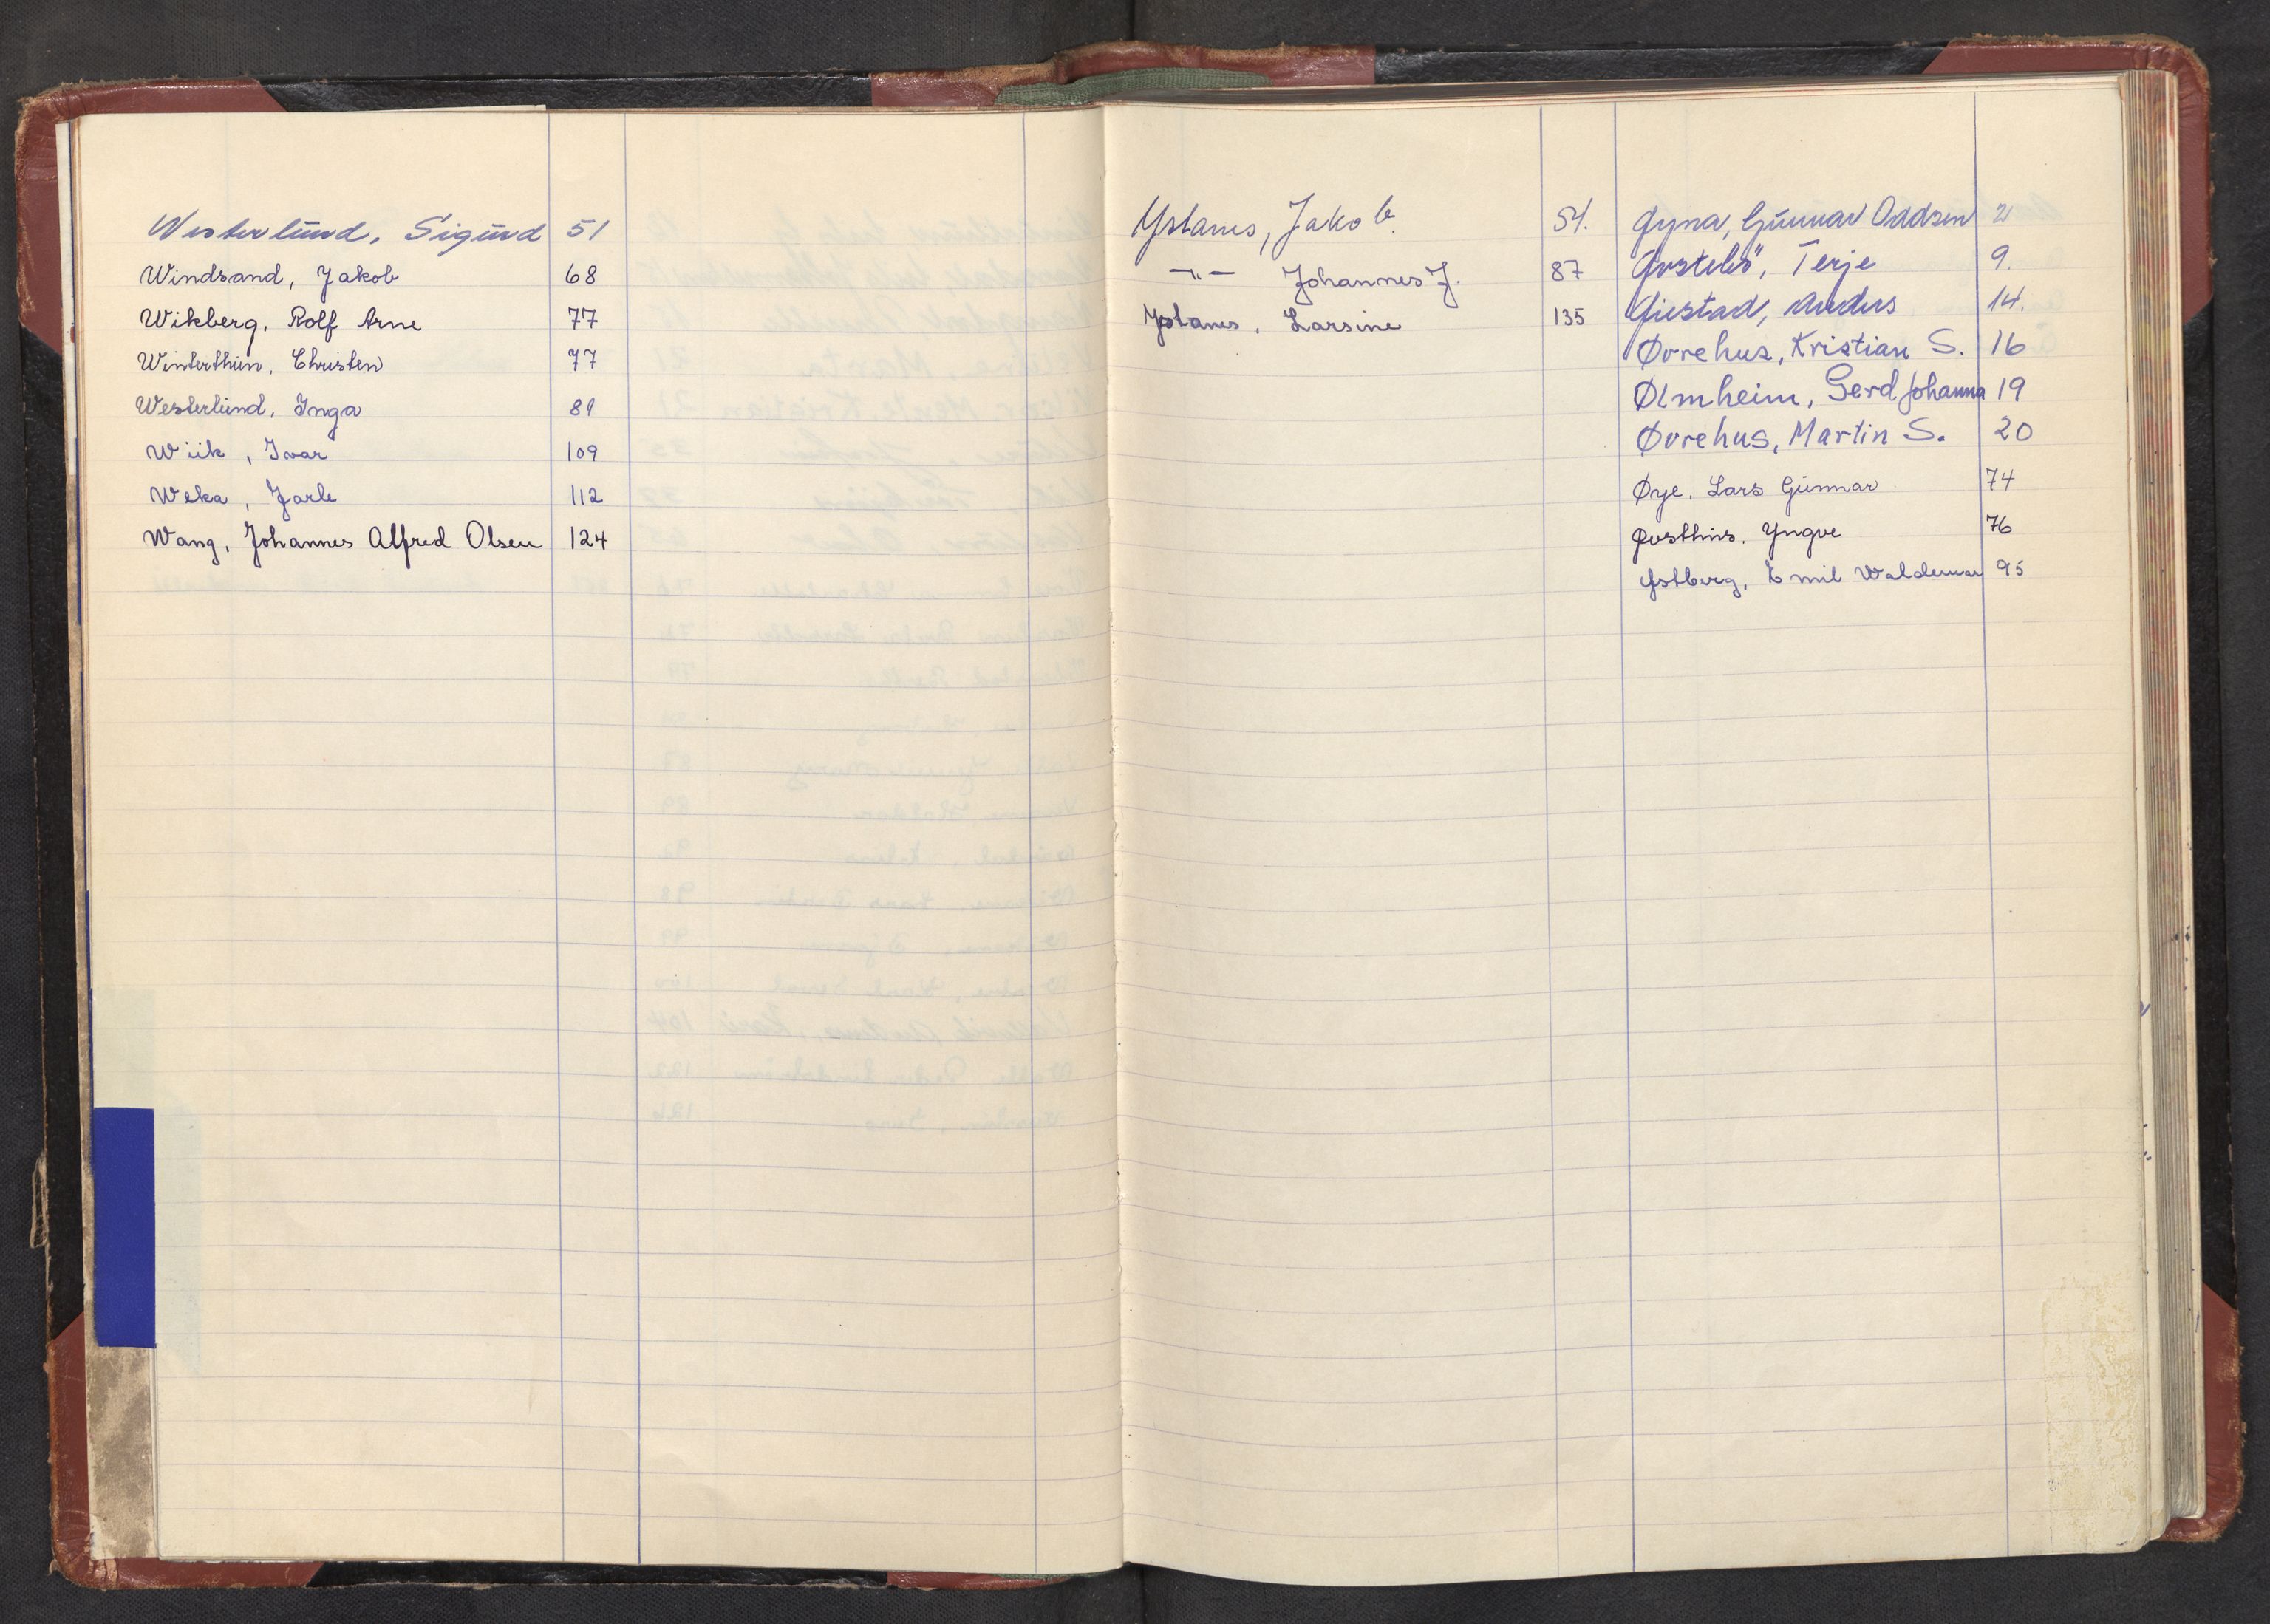 Westerlund, Sigurd 51
Windsand, Jakob 68
Wikberg, Rolf Arne 77
Winterthun, Christen 77
Westerlund, Inga 81
Wiik, Ivar 109
Weka, Jarle 112
Wang, Johannes Alfred Olsen 124
Ystanes, Jakob. 54.
—"— Johannes J. 87
Ystanes, Larsine 135
Øyna, Gunnar Oddsen 2
Østebö, Terje 9.
Anders 14.
Øvrehus, Kristian S. 16
Ølmheim, Gerd Johanna 19
Øvrehus, Martin S. 20
Øye, Lars Gunnar 74
Øvsthus, Yngve 76
Østberg, Emil Waldemar 95